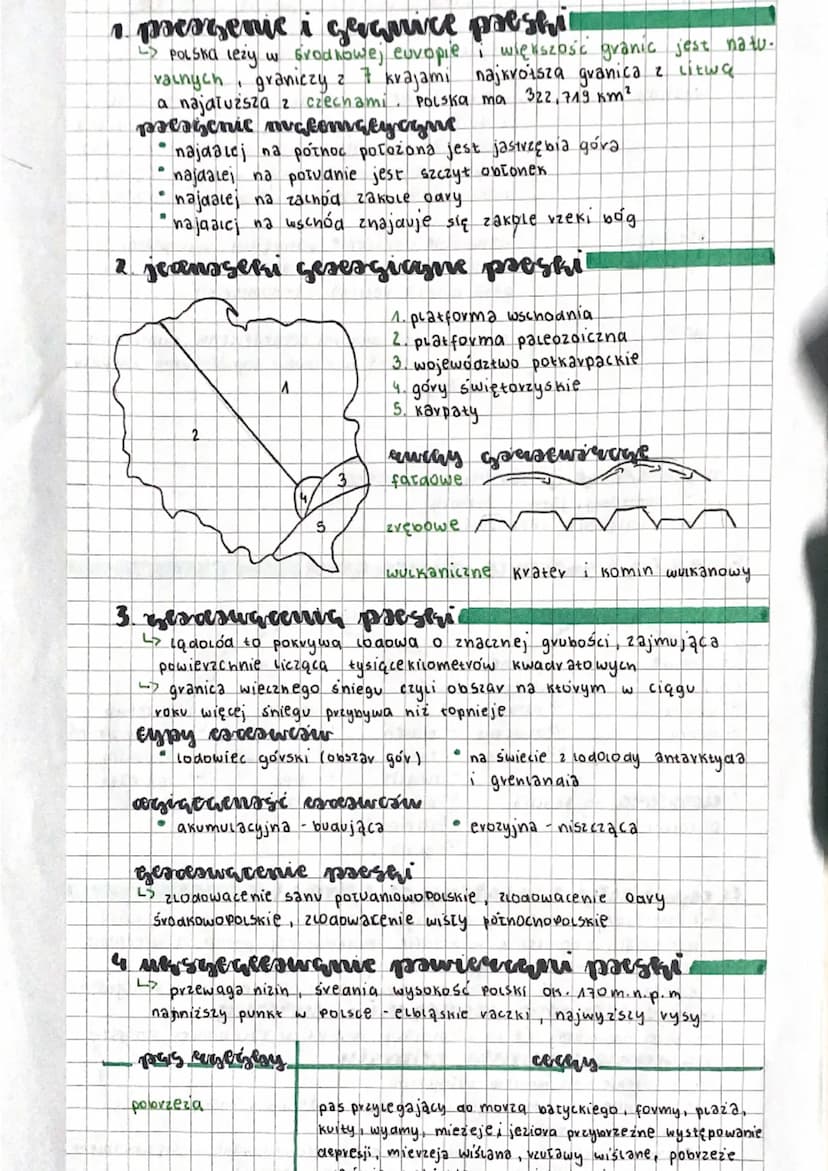 1. położenie i granice polski
↳ polska leży w środkowej europie i większość granic jest natu-
ralnych, graniczy z 7 krajami najkrótsza granica z litwą
a najdłuższa z czechami. polska ma 322,719 km²
położenie matematyczne
• najdalej na północ położona jest jastrzębia góra
• najdalej na połdanie jest szczyt obłonek
• najdalej na zachód zakole odry
• najdalej na wschód znajduje się zakole rzeki bóg
2. jednostki geologiczne polski
1. platforma wschodnia
2. platforma paleozoiczna
3. województwo potkarpackie
4. góry świętorzyskie
5. karpaty
1
2
3
4
5
ruchy górotwórcze
fałdowe
zrębowe
wulkaniczne krater i komin wulkanowy
3. zlodowacenia polski
↳ lądolód to pokrywa lodowa o znacznej grubości, zajmująca
powierzchnie licząca tysiące kilometrów kwadratowych
↳ granica wiecznego śniegu czyli obszar na którym w ciągu
roku więcej śniegu przybywa niż topnieje
typy lodowców
• lodowiec górski (obszar gór) • na świecie 2 lodolody antarktyda
i grenlandia
działalność lodowców
• akumulacyjna - budująca • erozyjna - niszcząca
zlodowacenie polski
↳ zlodowacenie sanu połdaniowopolskie, zlodowacenie odry
środkowopolskie, zlodowacenie wisły północnopolskie
4 ukształtowanie powierzchni polski
↳ przewaga nizin, średnia wysokość polski ok. 170 m.n.p.m
najniższy punkt w polsce - elbląskie raczki, najwyższy rysy
pas rzeźby cechy
pobrzeża
pas przylegający do morza bałtyckiego, formy, plaża,
kulfy, wydmy, mierzeje i jeziora przybrzeżne występowanie
depresji, mierzeja wiślana, żuławy wiślane, pobrzeże